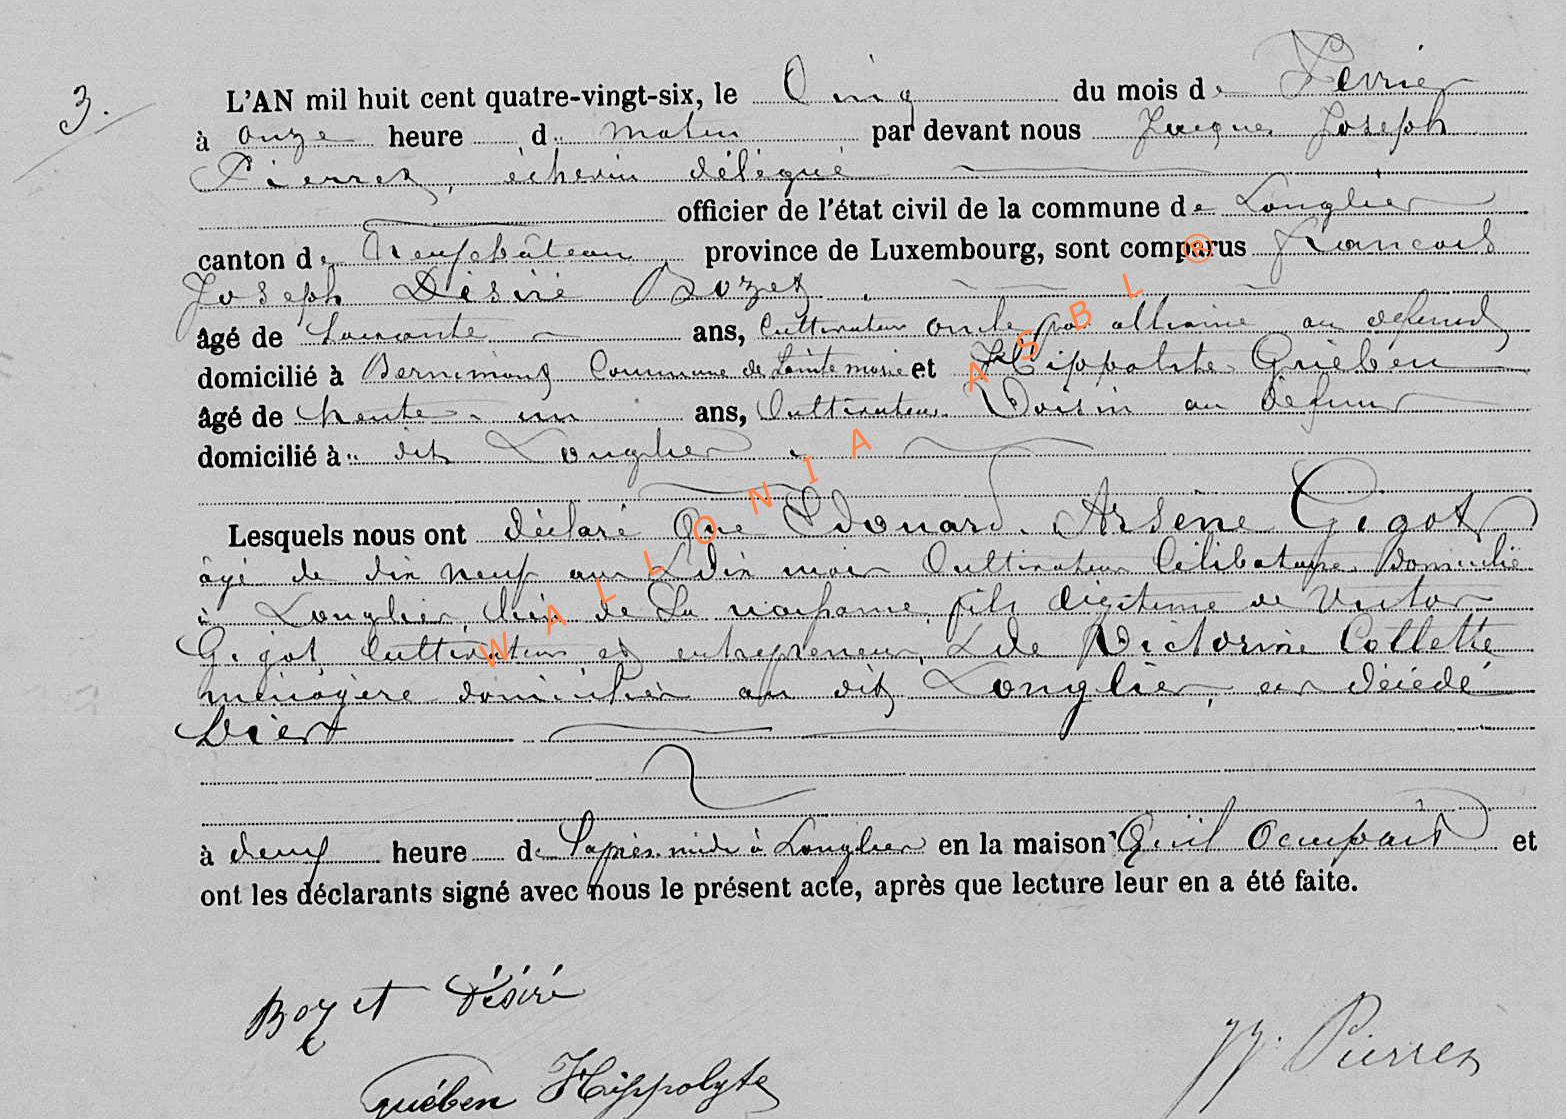 3.
L'AN mil huit cent quatre-vingt-six, le Cinq du mois de Fevrier
à onze heure du matin par devant nous Jacques Joseph
Pierret, échevin délégué
officier de l'état civil de la commune de Longlier
canton de Neufchâteau province de Luxembourg, sont comparus François
Joseph Désiré Bozet
âgé de ans, Cultivateur oncle par alliance au défunt
domicilié à Bernimont Commune de Sainte marie et Hippolite Guiében
âgé de trente-un ans, Cultivateur Voisin au défunt
domicilié à dit Longlier
Lesquels nous ont déclaré Que Edouard Arsène Gigot
âgé de dix neuf ans & dix mois Cultivateur Célibataire domicilié
à Longlier, lieu de Sa naissance, fils légitime de Victor
Gigot Cultivateur et entrepreneur, & de Victorine Collette
ménagère domiciliés au dit Longlier, est décédé
hier
à deux heure de l'après-midi à Longlier en la maison Qu'il Occupait et
ont les déclarants signé avec nous le présent acte, après que lecture leur en a été faite.
Bozet Désiré
Guében Hippolyte
JJ. Pierret
WALLONIA ASBL ®